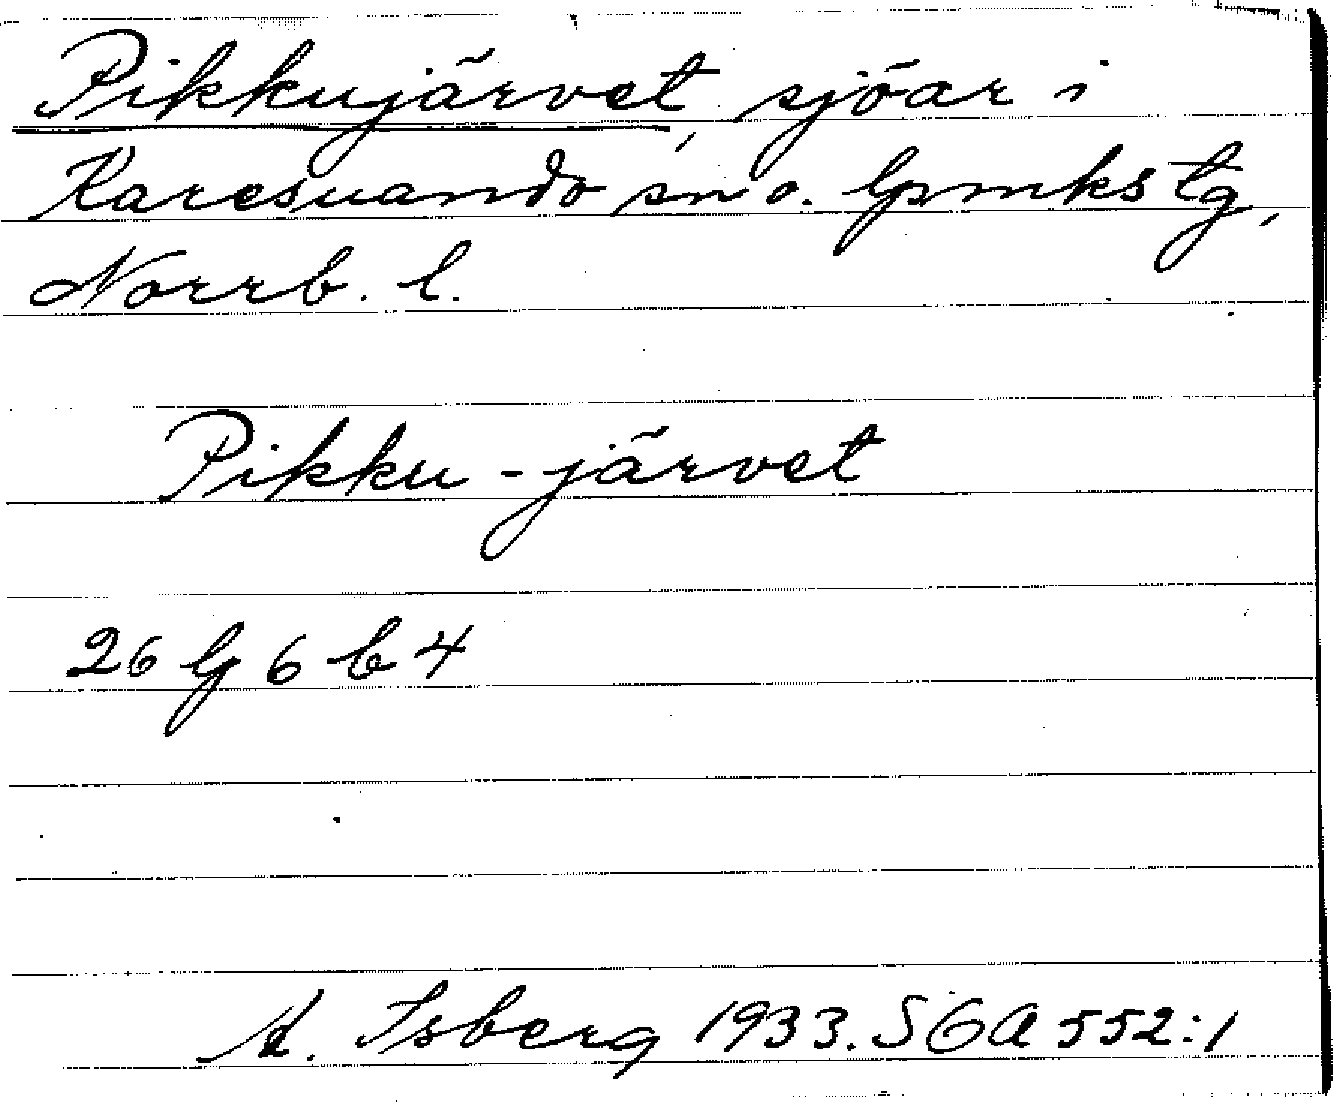 Pikkujärvet, sjöar i
Karesuando sn o. lpmkstg,
Norrb. l.
Pikku-järvet
26 g 6 b 4
A. Isberg 1933. SOA 552:1